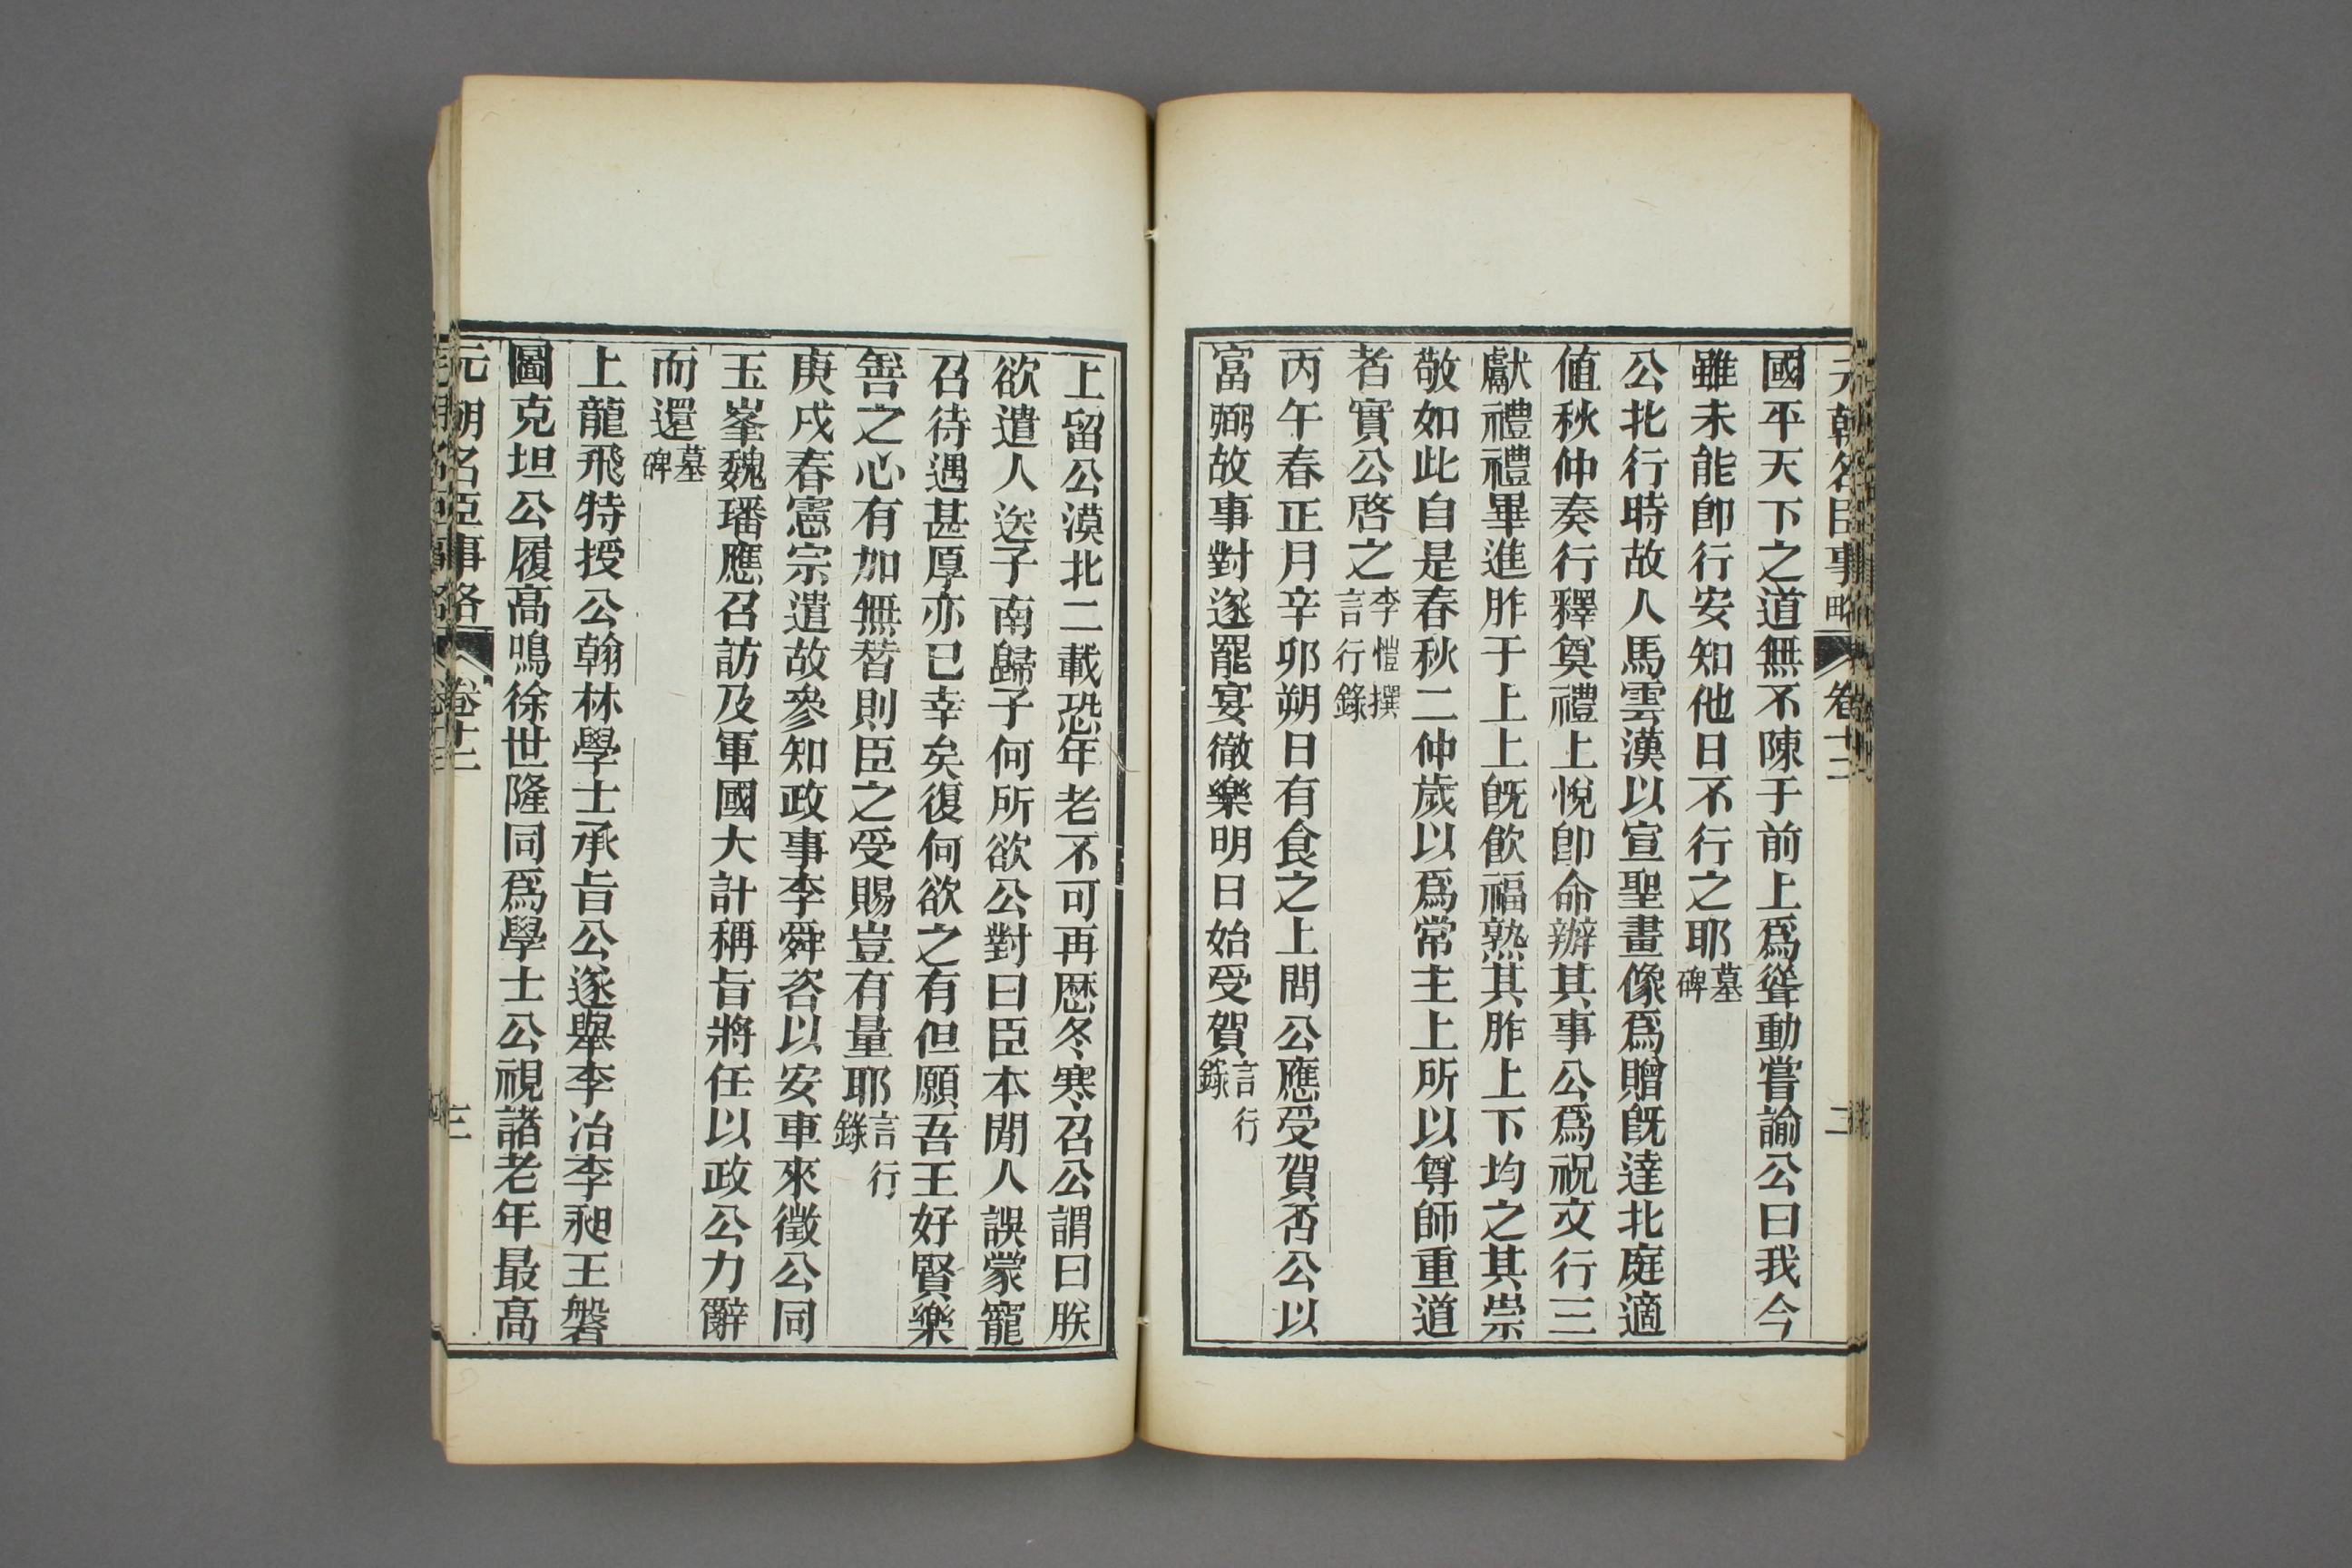 元朝名臣事略 卷十二 二
國平天下之道無不陳于前上爲聳動嘗諭公曰我今
雖未能卽行安知他日不行之耶墓碑
公北行時故人馬雲漢以宣聖畫像爲贈旣達北庭適
値秋仲奏行釋奠禮上悅卽命辦其事公爲祝文行三
獻禮禮畢進胙于上上旣飮福熟其胙上下均之其崇
敬如此自是春秋二仲歲以爲常主上所以尊師重道
者實公啓之李愷撰言行錄
丙午春正月辛卯朔日有食之上問公應受賀否公以
富弼故事對遂罷宴徹樂明日始受賀言行錄
上留公漠北二載恐年老不可再歷冬寒召公謂曰朕
欲遣人送子南歸子何所欲公對曰臣本閒人誤蒙寵
召待遇甚厚亦已幸矣復何欲之有但願吾王好賢樂
善之心有加無替則臣之受賜豈有量耶言行錄
庚戌春憲宗遣故參知政事李舜咨以安車來徵公同
玉峯魏璠應召訪及軍國大計稱旨將任以政公力辭
而還墓碑
上龍飛特授公翰林學士承旨公遂舉李冶李昶王磐
圖克坦公履高鳴徐世隆同爲學士公視諸老年最高
元朝名臣事略 卷十二 三